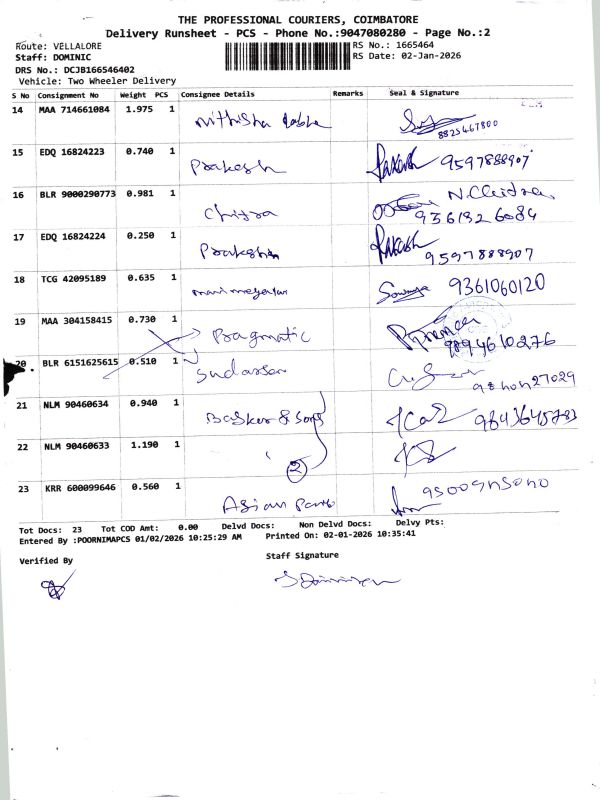 THE PROFESSIONAL COURIERS, COIMBATORE
Delivery Runsheet - PCS - Phone No.:9047080280 - Page No.:2
Route: VELLALORE
RS No.: 1665464
Staff: DOMINIC
RS Date: 02-Jan-2026
DRS No.: DCJB166546402
Vehicle: Two Wheeler Delivery
S No Consignment No Weight PCS Consignee Details Remarks Seal & Signature
14 MAA 714661084 1.975 1 Nithisha 8825467800
15 EDQ 16824223 0.740 1 Prakash Prakash 9597888907
16 BLR 9000290773 0.981 1 Chitra N.Chitra 9361326084
17 EDQ 16824224 0.250 1 Prakash Prakash 9597888907
18 TCG 42095189 0.635 1 Sowmya 9361060120
19 MAA 304158415 0.730 1 Pragmatic 9894610276
20 BLR 6151625615 0.510 1 Sudarsan
21 NLM 90460634 0.940 1 Basker & Sons 9843645783
22 NLM 90460633 1.190 1 2
23 KRR 600099646 0.560 1 Asian
Tot Docs: 23 Tot COD Amt: 0.00 Delvd Docs: Non Delvd Docs: Delvy Pts:
Entered By :POORNIMAPCS 01/02/2026 10:25:29 AM Printed On: 02-01-2026 10:35:41
Verified By
Staff Signature